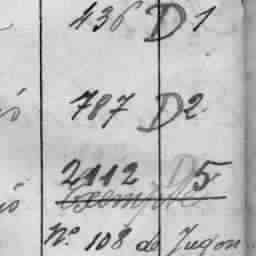 436 D 1
787 D 2
2112 D 5
Exempté
N° 108 de Jugon